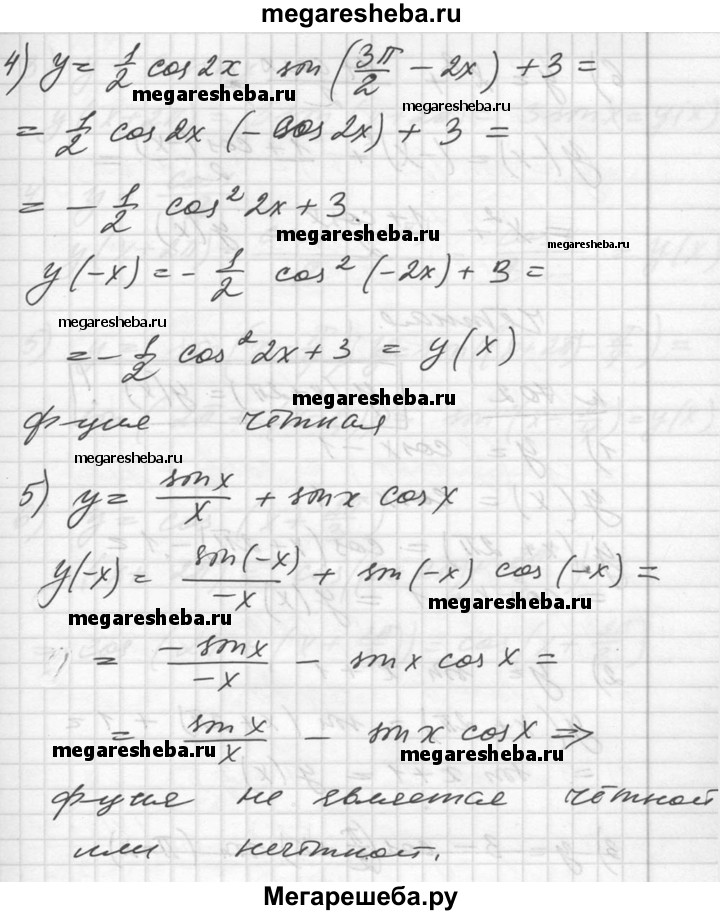 megaresheba.ru
4) y = 1/2 cos 2x sin (3π/2 − 2x) + 3 =
megaresheba.ru megaresheba.ru
= 1/2 cos 2x (− cos 2x) + 3 =
= − 1/2 cos² 2x + 3.
megaresheba.ru megaresheba.ru
y(−x) = − 1/2 cos² (−2x) + 3 =
megaresheba.ru
= − 1/2 cos² 2x + 3 = y(x)
megaresheba.ru
ф-ция чётная
megaresheba.ru
5) y = sin x/x + sin x cos x
y(−x) = sin(−x)/−x + sin(−x) cos(−x) =
megaresheba.ru megaresheba.ru
= − sin x/−x − sin x cos x =
= sin x/x − sin x cos x ⇒
megaresheba.ru megaresheba.ru
ф-ция не является чётной
или нечётной.
Мегарешеба.ру